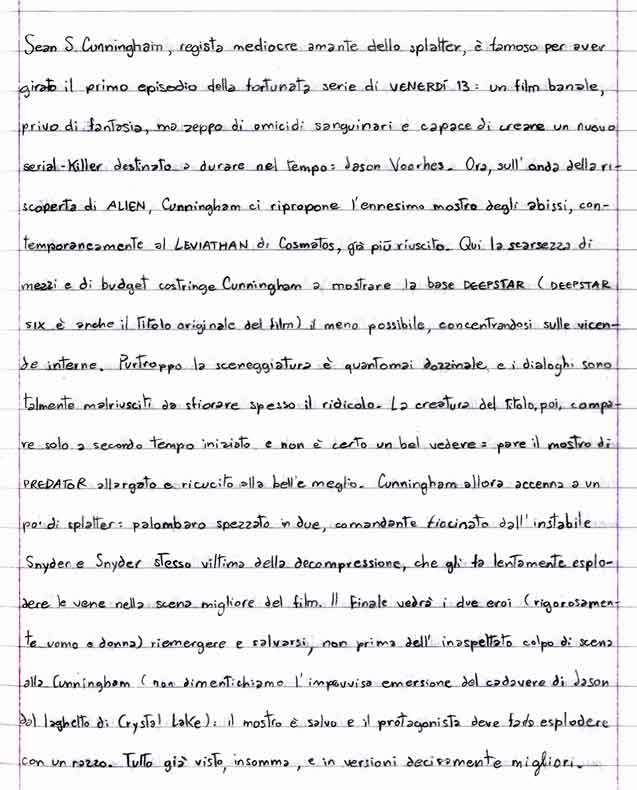 Sean S. Cunningham, regista mediocre amante dello splatter, è famoso per aver
girato il primo episodio della fortunata serie di VENERDÍ 13: un film banale,
privo di fantasia, ma zeppo di omicidi sanguinari e capace di creare un nuovo
serial-Killer destinato a durare nel tempo: Jason Voorhes. Ora, sull'onda della ri-
scoperta di ALIEN, Cunningham ci ripropone l'ennesimo mostro degli abissi, con-
temporaneamente al LEVIATHAN di Cosmatos, già più riuscito. Qui la scarsezza di
mezzi e di budget costringe Cunningham a mostrare la base DEEPSTAR (DEEPSTAR
SIX è anche il Titolo originale del film) il meno possibile, concentrandosi sulle vicen-
de interne. Purtroppo la sceneggiatura è quantomai dozzinale, e i dialoghi sono
talmente malriusciti da sfiorare spesso il ridicolo. La creatura del titolo, poi, compa-
re solo a secondo tempo iniziato e non è certo un bel vedere: pare il mostro di
PREDATOR allargato e ricucito alla bell'e meglio. Cunningham allora accenna a un
po' di splatter: palombaro spezzato in due, comandante fiocinato dall'instabile
Snyder e Snyder stesso vittima della decompressione, che gli fa lentamente esplo-
dere le vene nella scena migliore del film. Il finale vedrà i due eroi (rigorosamen-
te uomo e donna) riemergere e salvarsi, non prima dell'inaspettato colpo di scena
alla Cunningham (non dimentichiamo l'impovvisa emersione del cadavere di Jason
dal laghetto di Crystal Lake): il mostro è salvo e il protagonista deve farlo esplodere
con un razzo. Tutto già visto, insomma, e in versioni decisamente migliori.